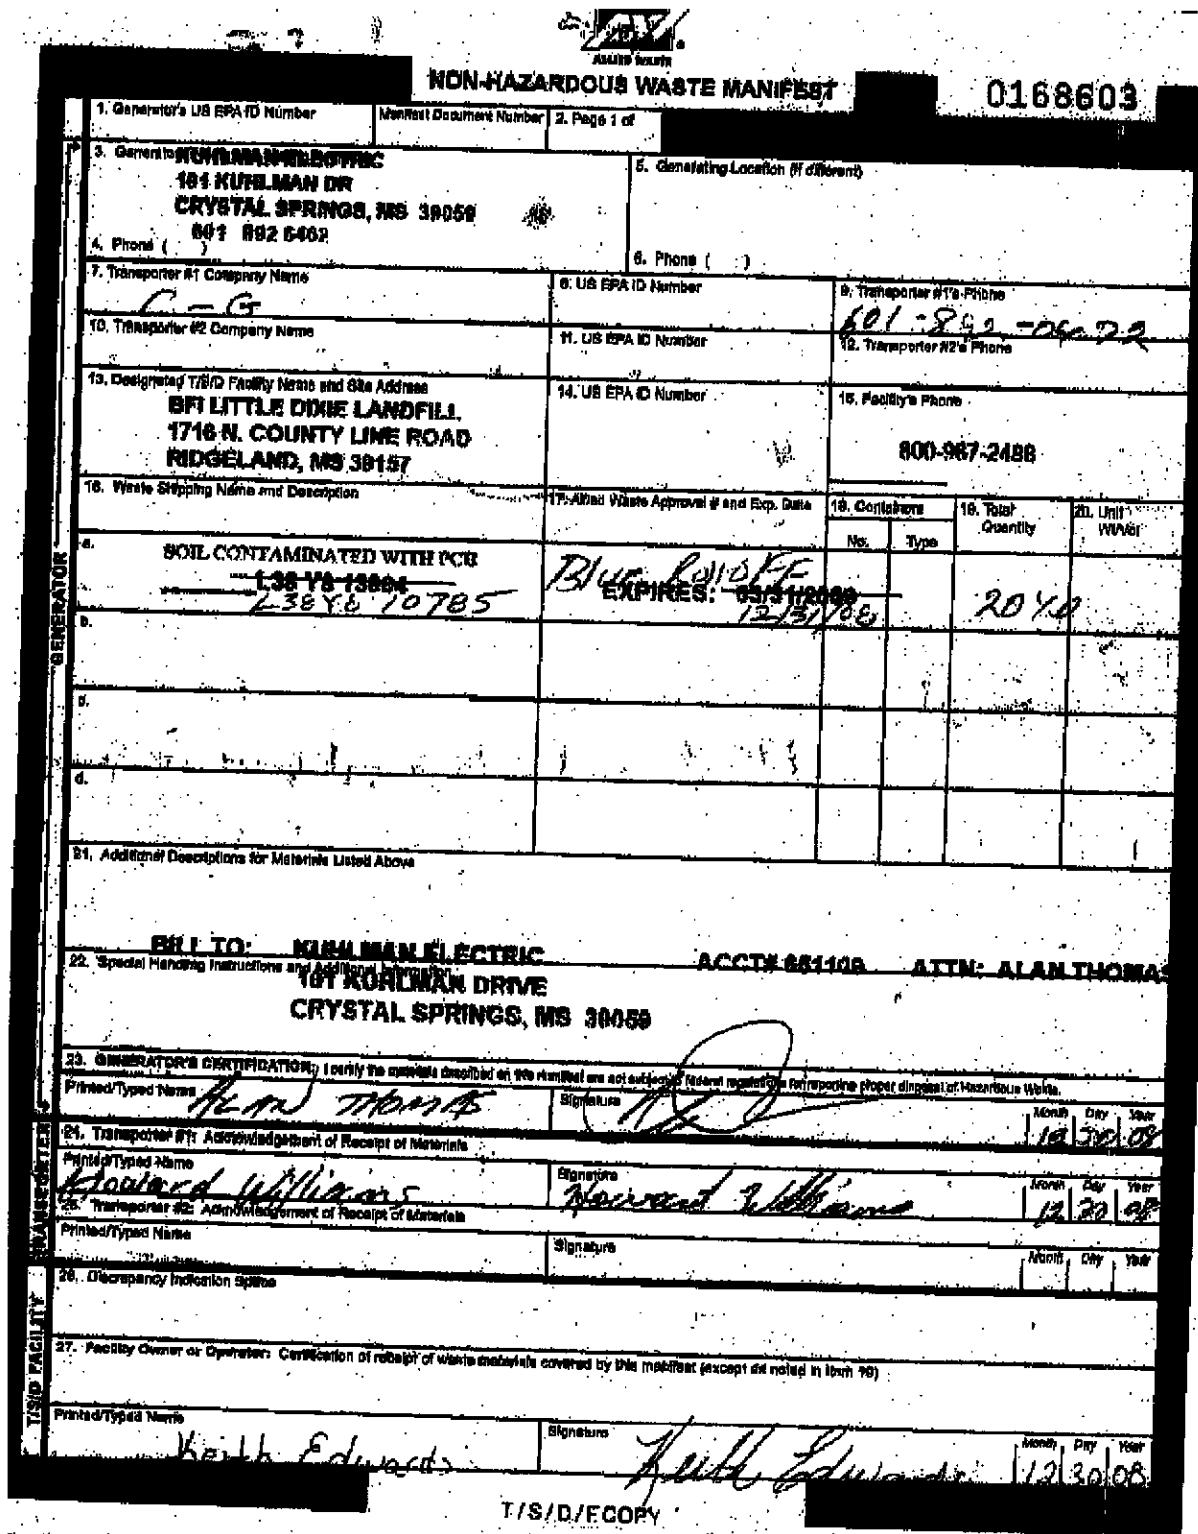 ALLIED WASTE
NON-HAZARDOUS WASTE MANIFEST
0168603
1. Generator's US EPA ID Number
Manifest Document Number
2. Page 1 of
3. Generator
KUHLMAN ELECTRIC
101 KUHLMAN DR
CRYSTAL SPRINGS, MS 39059
601 892 6462
4. Phone ( )
5. Generating Location (if different)
6. Phone ( )
7. Transporter #1 Company Name
C-G
8. US EPA ID Number
9. Transporter #1's Phone
601-892-0422
10. Transporter #2 Company Name
11. US EPA ID Number
12. Transporter #2's Phone
13. Designated T/S/D Facility Name and Site Address
BFI LITTLE DIXIE LANDFILL
1716 N. COUNTY LINE ROAD
RIDGELAND, MS 39157
14. US EPA ID Number
15. Facility's Phone
800-967-2488
16. Waste Shipping Name and Description
17. Allied Waste Approval # and Exp. Date
18. Containers
No.
Type
19. Total Quantity
20. Unit Wt/Vol
GENERATOR
a.
SOIL CONTAMINATED WITH PCB
L38Y8 10785
Blue Rolloff
EXPIRES:
12/31/08
20 YD
b.
d.
21. Additional Descriptions for Materials Listed Above
BILL TO: KUHLMAN ELECTRIC ACCT# 651109 ATTN: ALAN THOMAS
22. Special Handling Instructions and Additional Information
101 KUHLMAN DRIVE
CRYSTAL SPRINGS, MS 39059
23. GENERATOR'S CERTIFICATION: I certify the materials described on this manifest are not subject to federal regulations for reporting proper disposal of Hazardous Waste.
Printed/Typed Name
ALAN THOMAS
Signature
Month Day Year
TRANSPORTER
24. Transporter #1: Acknowledgement of Receipt of Materials
Printed/Typed Name
Howard Williams
Signature
Howard Williams
Month Day Year
12 30 08
25. Transporter #2: Acknowledgement of Receipt of Materials
Printed/Typed Name
Signature
Month Day Year
T/S/D FACILITY
26. Discrepancy Indication Space
27. Facility Owner or Operator: Certification of receipt of waste materials covered by this manifest (except as noted in Item 19)
Printed/Typed Name
Keith Edwards
Signature
Keith Edwards
Month Day Year
12 30 08
T/S/D/F COPY